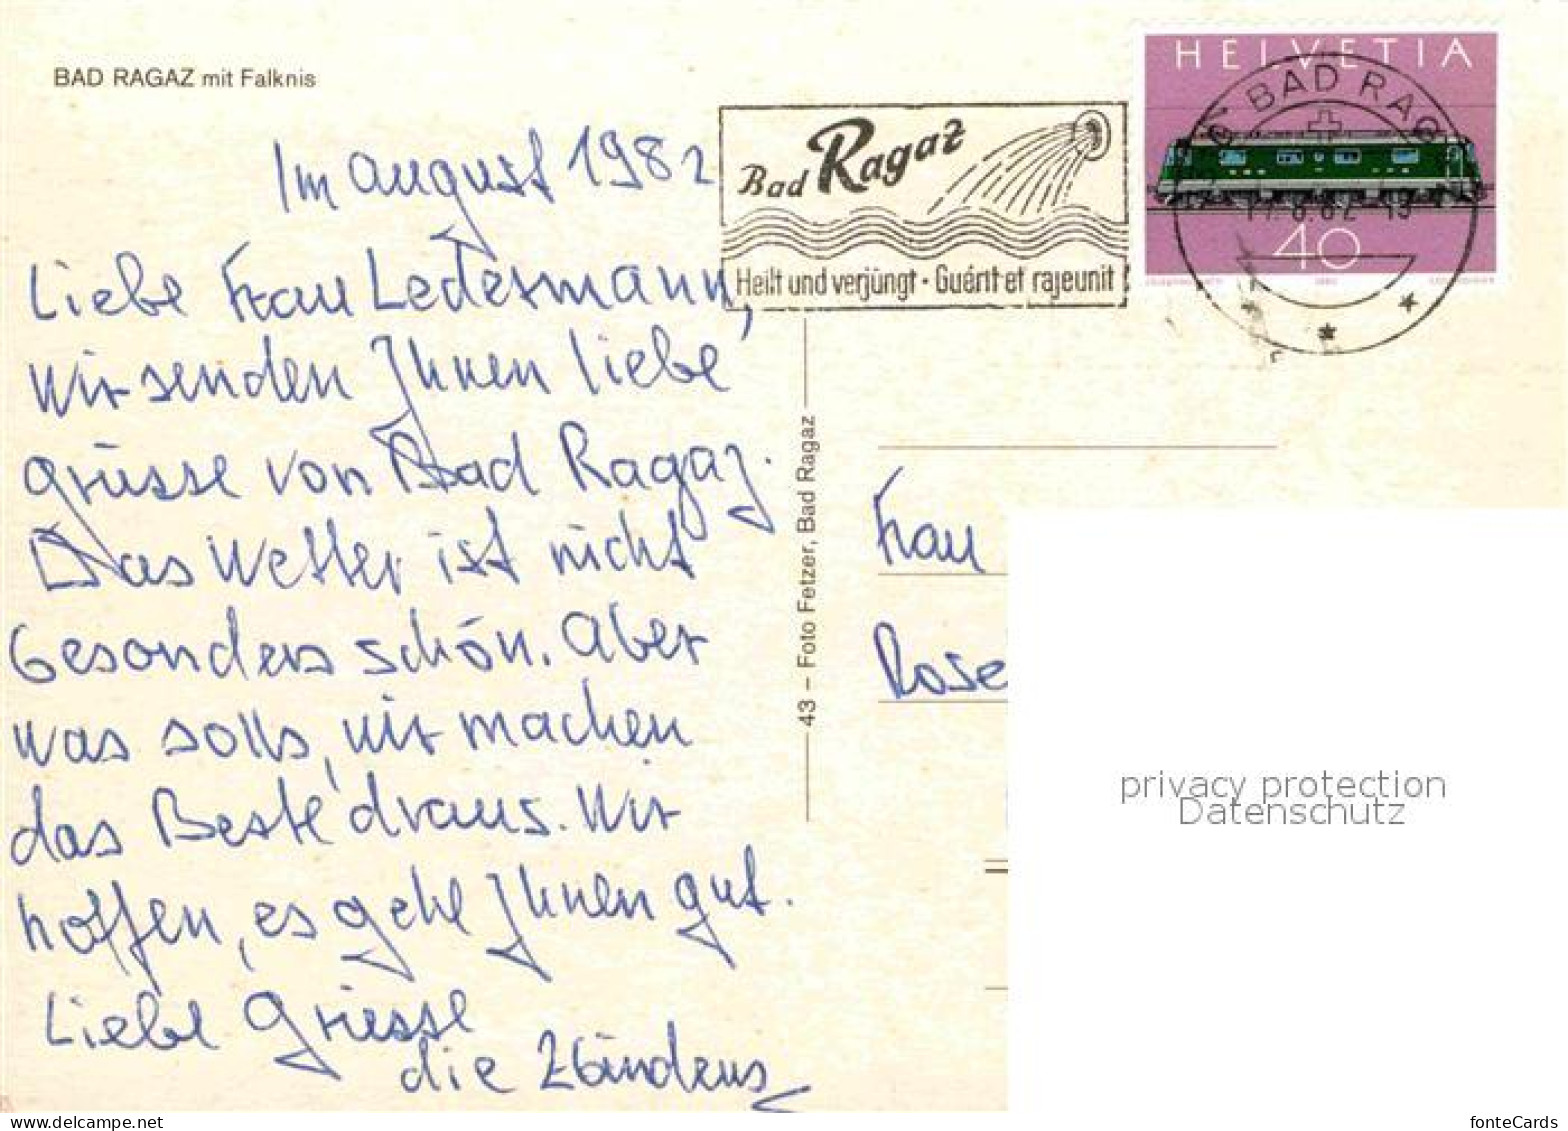 BAD RAGAZ mit Falknis
Im august 1982
Liebe Frau Ledermann,
wir senden Ihnen liebe
grüsse von Bad Ragaz.
Das Wetter ist nicht
besonders schön. Aber
was solls, wir machen
das Beste draus. Wir
hoffen, es gehe Ihnen gut.
Liebe Grüsse
die
Bad Ragaz
Heilt und verjüngt · Guérit et rajeunit
HELVETIA
BAD RAGAZ
40
43 – Foto Fetzer, Bad Ragaz
Frau
Rose
privacy protection
Datenschutz
delcampe.net
fonteCards